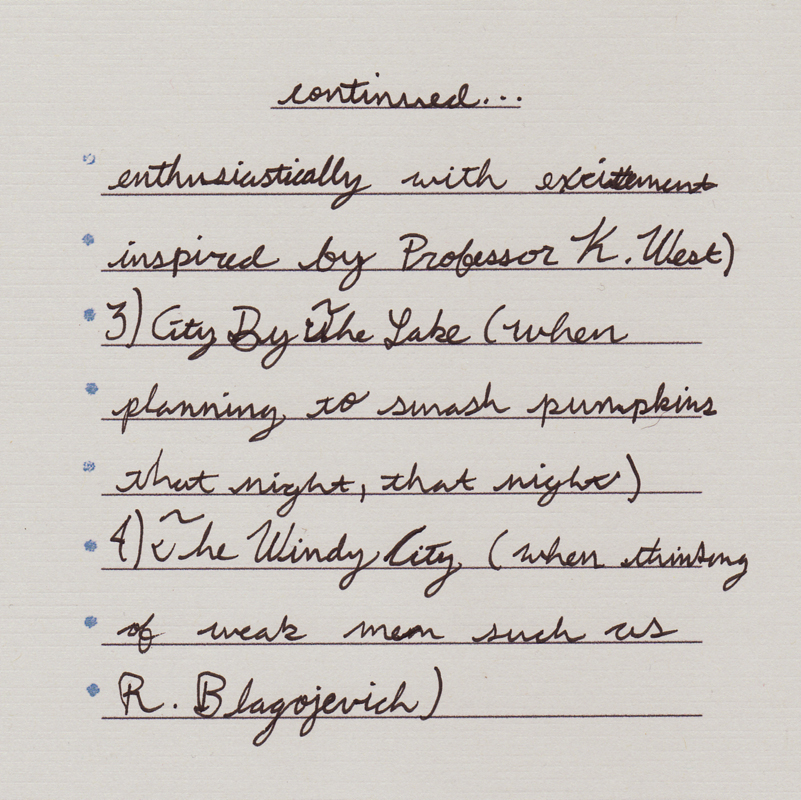 continued...
enthusiastically with excitement
inspired by Professor K. West)
3) City By The Lake (when
planning to smash pumpkins
that night, that night)
4) The Windy City (when thinking
of weak men such as
R. Blagojevich)